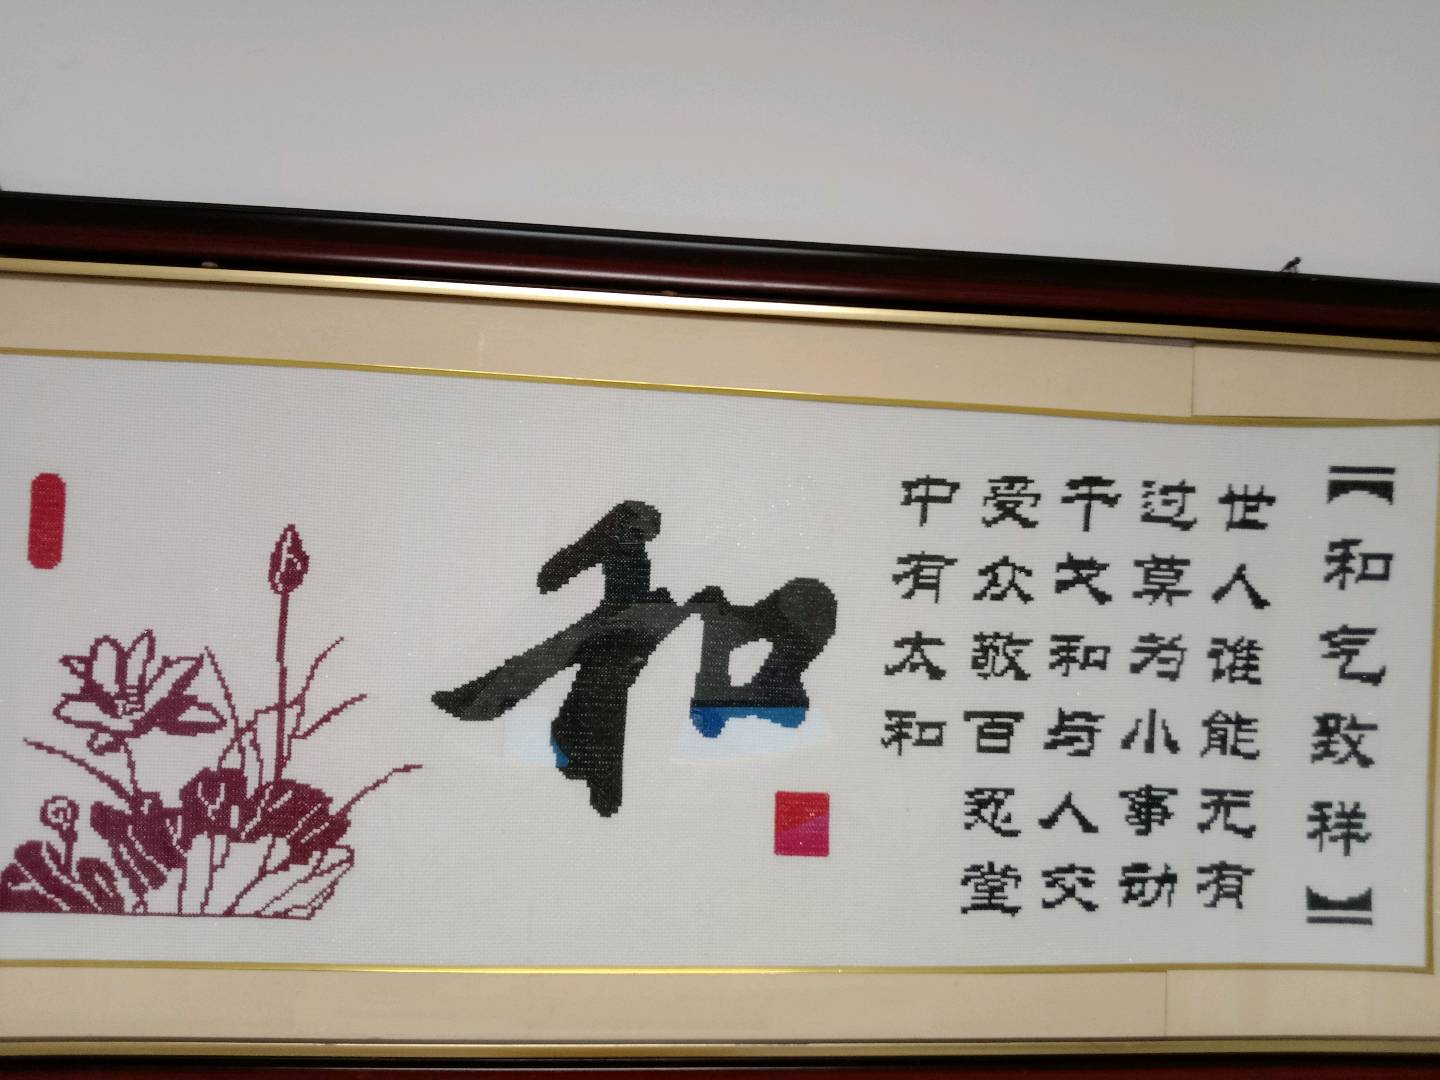 【和气致祥】
世人谁能无有
过莫为小事动
干戈和与人交
受众敬百忍堂
中有太和
和